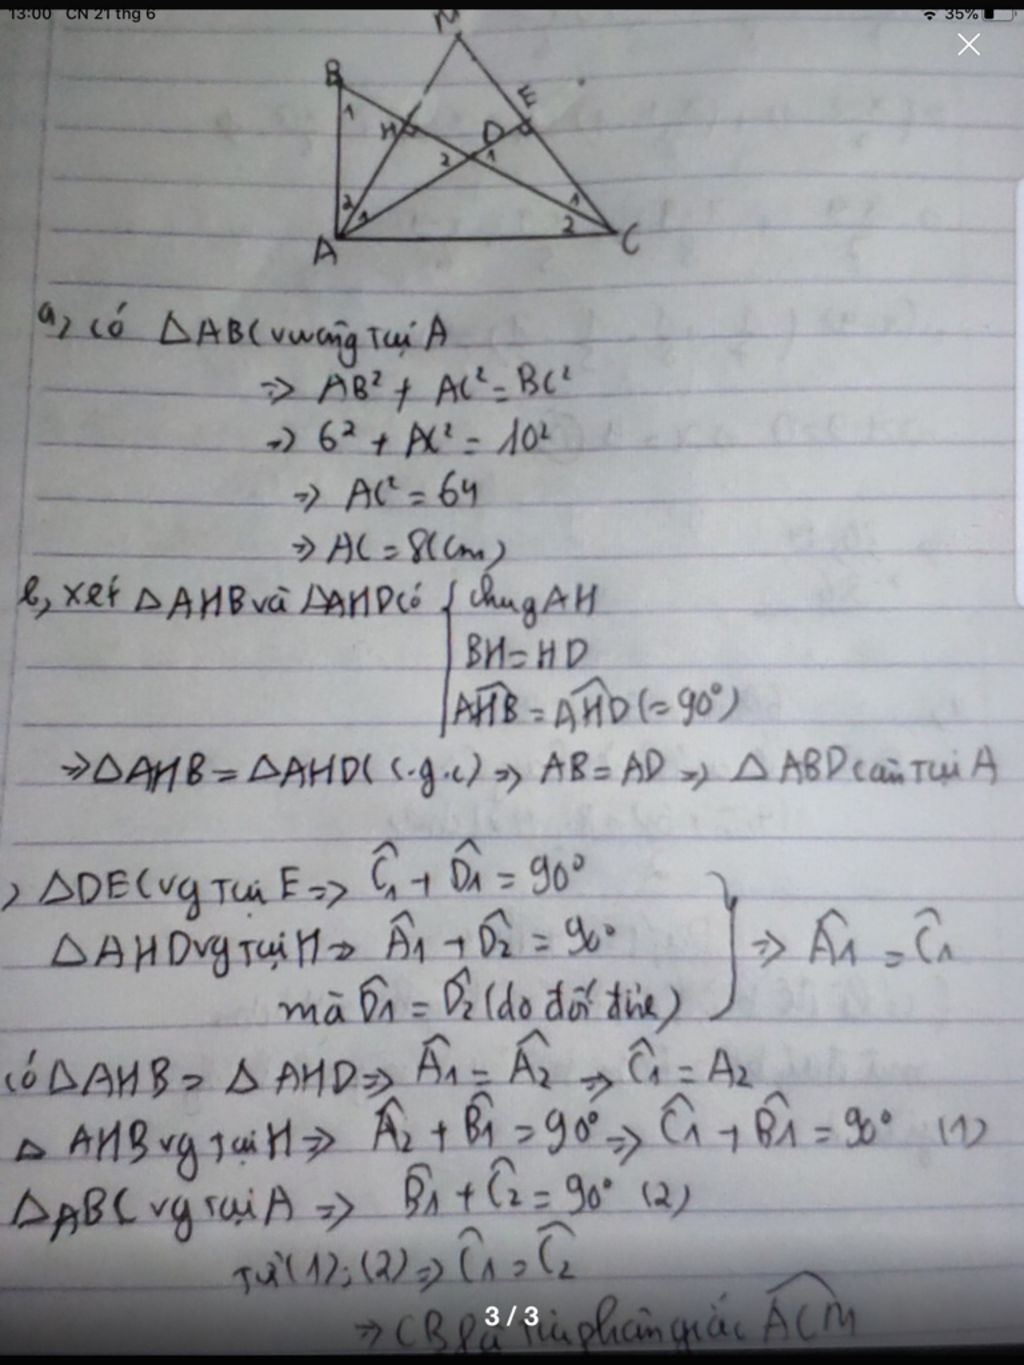 13:00 CN 21 thg 6
35%
M
B
E
1
H
D
2
1
2
1
1
2
A
C
a, Có △ABC vuông tại A
=> AB² + AC² = BC²
=> 6² + AC² = 10²
=> AC² = 64
=> AC = 8(cm)
b, xét △AHB và △AHD có { chung AH
BH = HD
AHB = AHD (= 90°)
=> △AHB = △AHD (c.g.c) => AB = AD => △ABD cân tại A
) △DEC vg tại E => Ĉ1 + D̂1 = 90°
△AHD vg tại H => Â1 + D̂2 = 90° } => Â1 = Ĉ1
mà D̂1 = D̂2 (do đối đỉnh)
có △AHB = △AHD => Â1 = Â2 => Ĉ1 = A2
△AHB vg tại H => Â2 + B̂1 = 90° => Ĉ1 + B̂1 = 90° (1)
△ABC vg tại A => B̂1 + Ĉ2 = 90° (2)
Từ (1); (2) => Ĉ1 = Ĉ2
3 / 3
=> CB là tia phân giác ACM